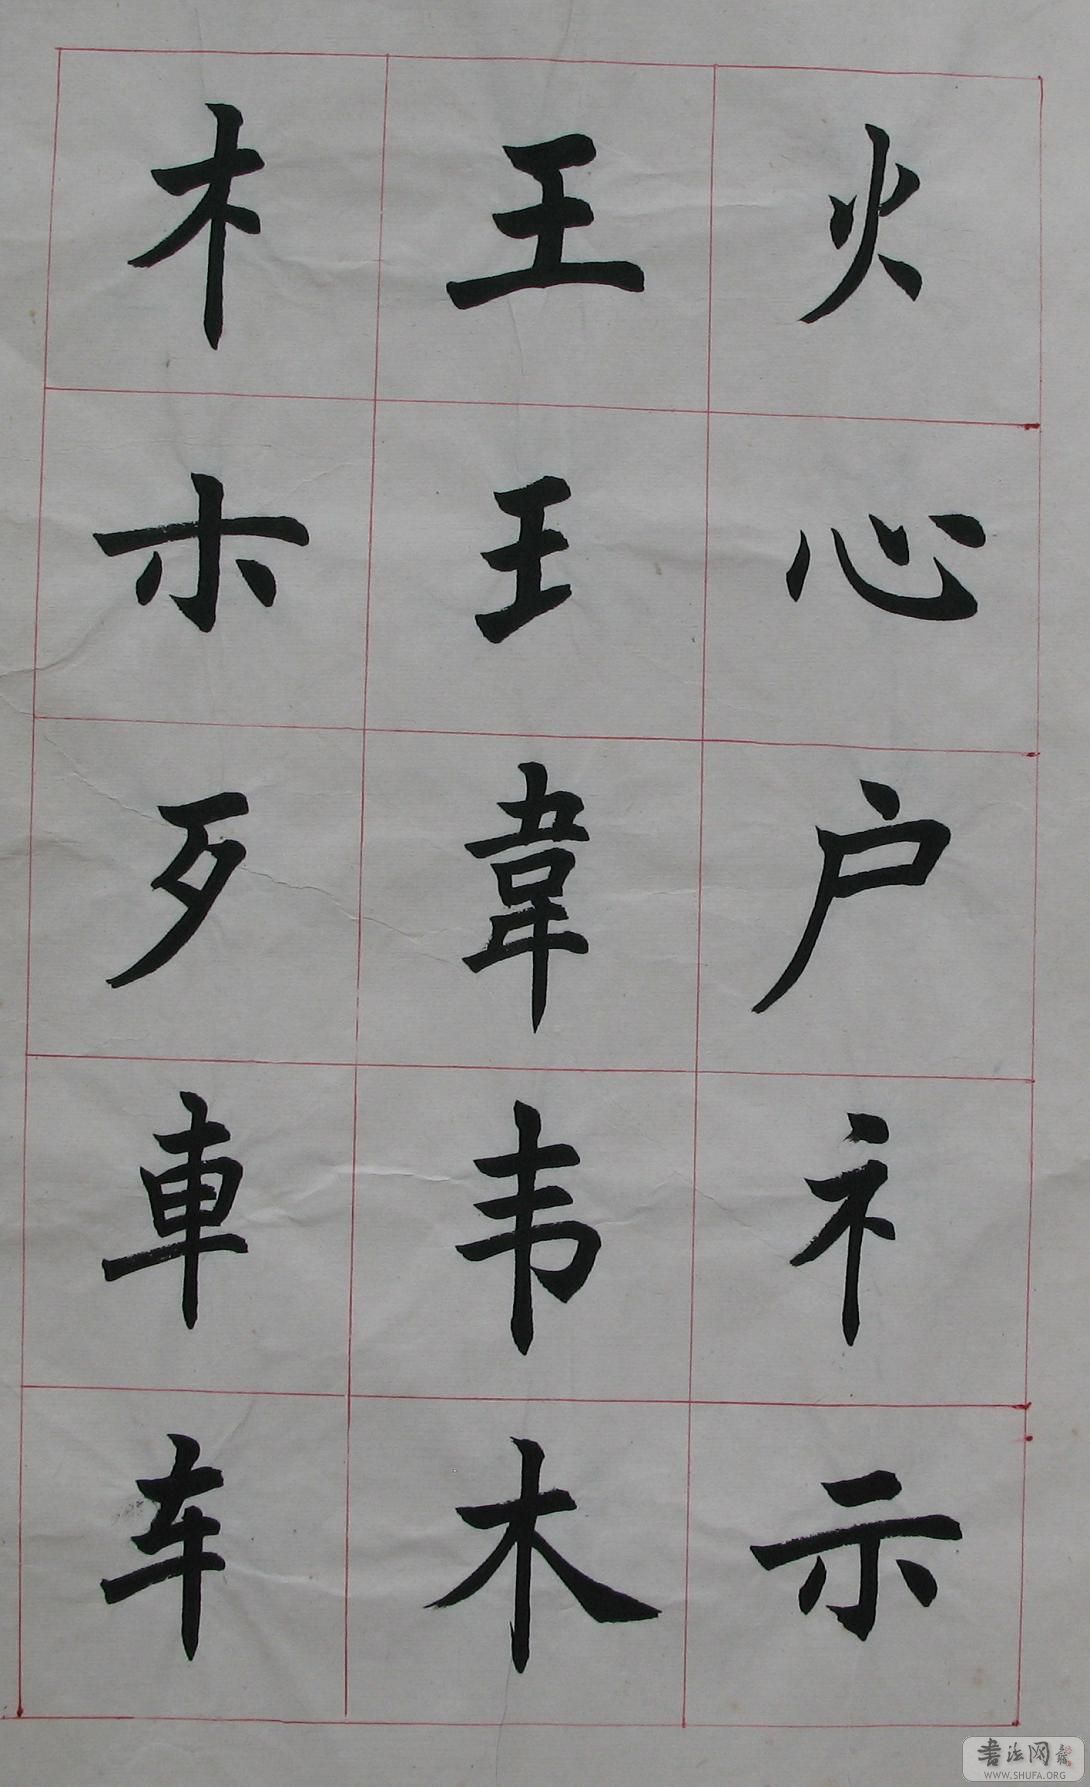 火心户礻示
王王韋韦木
木朩歹車车
书法网
WWW.SHUFA.ORG